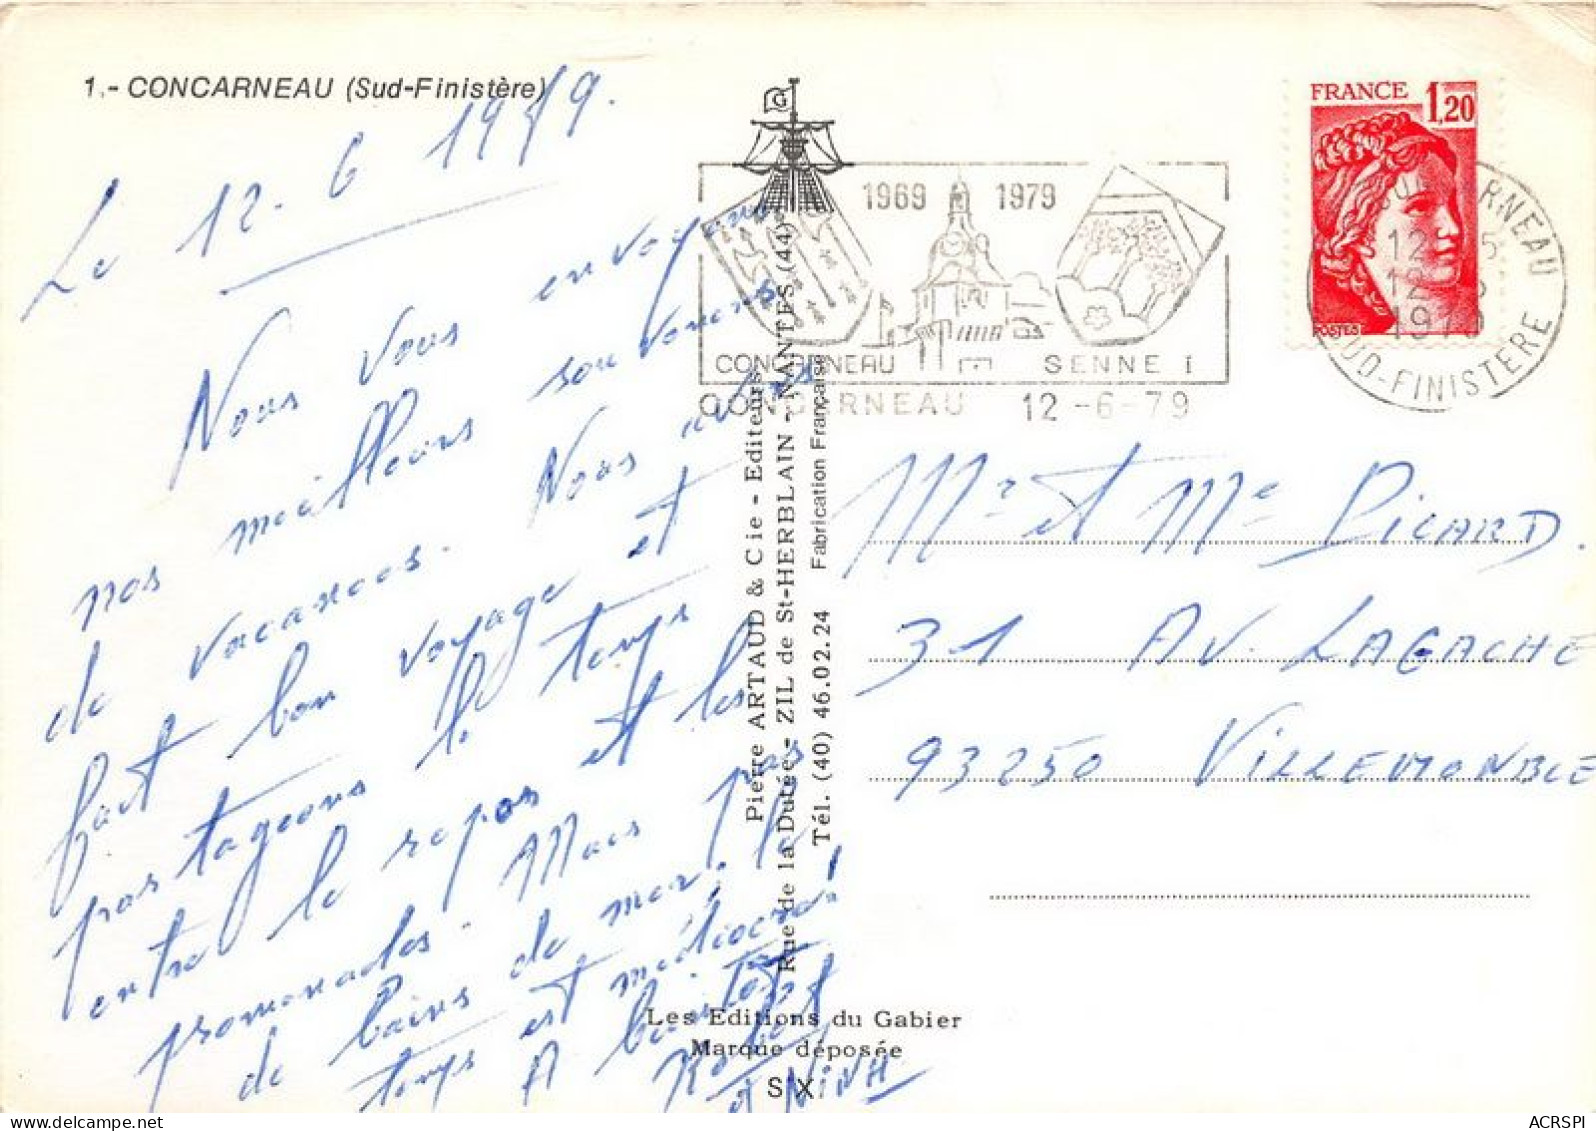 1.- CONCARNEAU (Sud-Finistère)
Le 12. 6 1979.
Nous vous envoyons
nos meilleurs souvenirs
de vacances. Nous avons
fait bon voyage et
partageons le temps
entre le repos et les
promenades. Mais pas
de bains de mer, le
temps est médiocre!
A bientôt
Robert
et NINA
Pierre ARTAUD & Cie - Editeurs
Rue de la Dutée - ZIL de St-HERBLAIN - NANTES (44)
Tél. (40) 46.02.24 Fabrication Française
Les Editions du Gabier
Marque déposée
G
1969 1979
CONCARNEAU SENNE I
CONCARNEAU 12-6-79
FRANCE 1,20
POSTES
CONCARNEAU
1979
SUD-FINISTERE
Mr et Me Picard.
31 AV. LAGACHE
93250 VILLEMOMBLE
ACRSPI